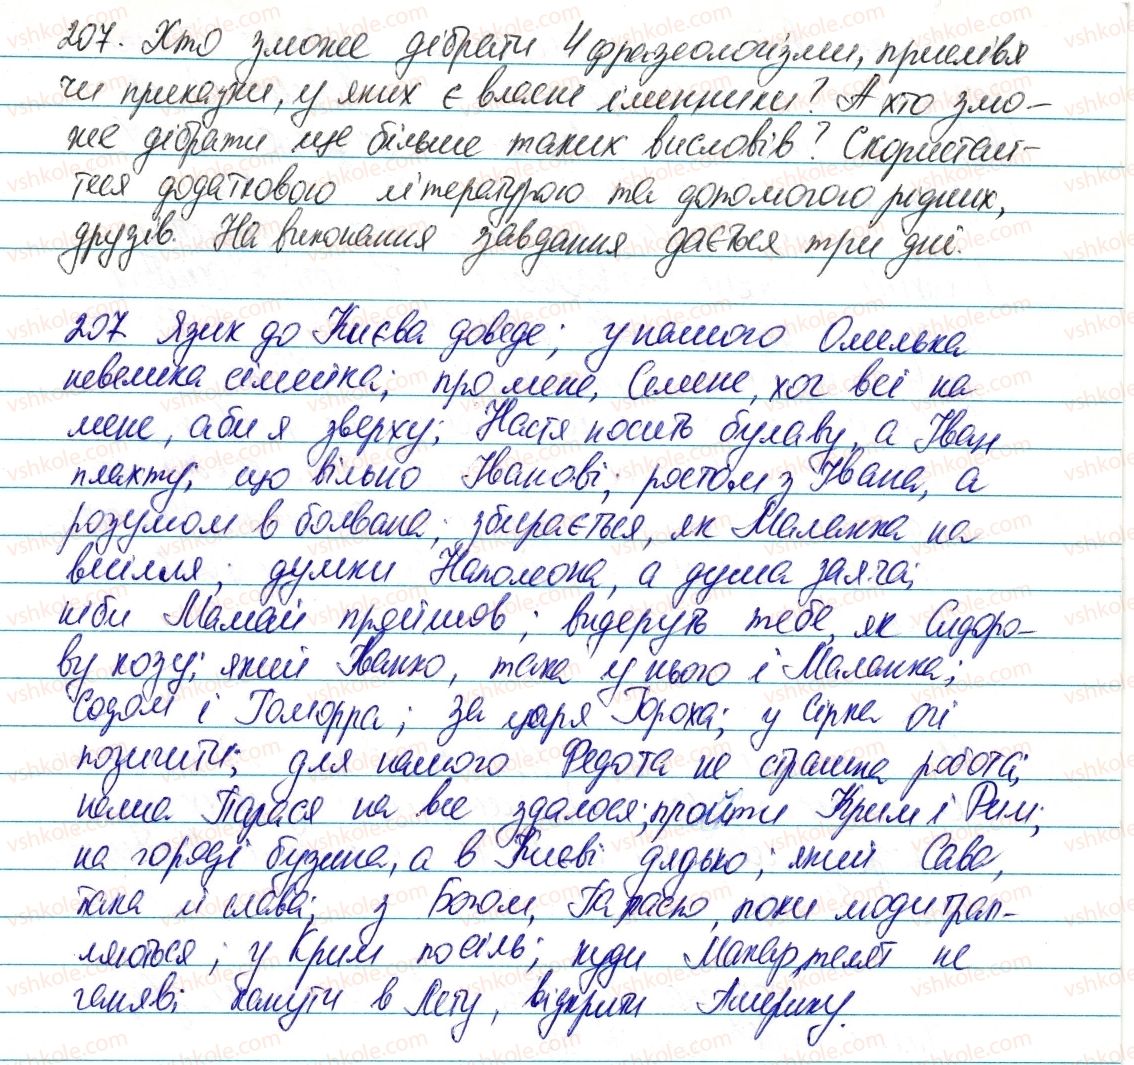 207. Хто зможе дібрати 4 фразеологізми, прислівя
чи приказки, у яких є власне іменники? А хто змо-
же дібрати ще більше таких висловів? Скористай-
теся додатковою літературою та допомогою рідних,
друзів. На виконання завдання дається три дні.
207 Язик до Києва доведе; у нашого Омелька
невелика сімейка; про мене, Семене, хоч всі на
мене, аби я зверху; Настя носить булаву, а Іван
плахту; що вільно Іванові; ростом з Івана, а
розумом в болвана; збирається, як Маланка на
весілля; думки Наполеона, а душа заяча;
ніби Мамай пройшов; видеруть тебе, як Сидоро-
ву козу; який Іванко, така у нього і Маланка;
Содом і Гоморра; за царя Гороха; у Сірка очі
позичити; для нашого Федота не страшна робота;
наша Парася на все здалося; пройти Крим і Рим;
на городі бузина, а в Києві дядько; який Сава,
така й слава; з Богом, Парасю, поки люди трап-
ляються; у Крим по сіль; куди Макар телят не
ганяв; канути в Лету, відкрити Америку.